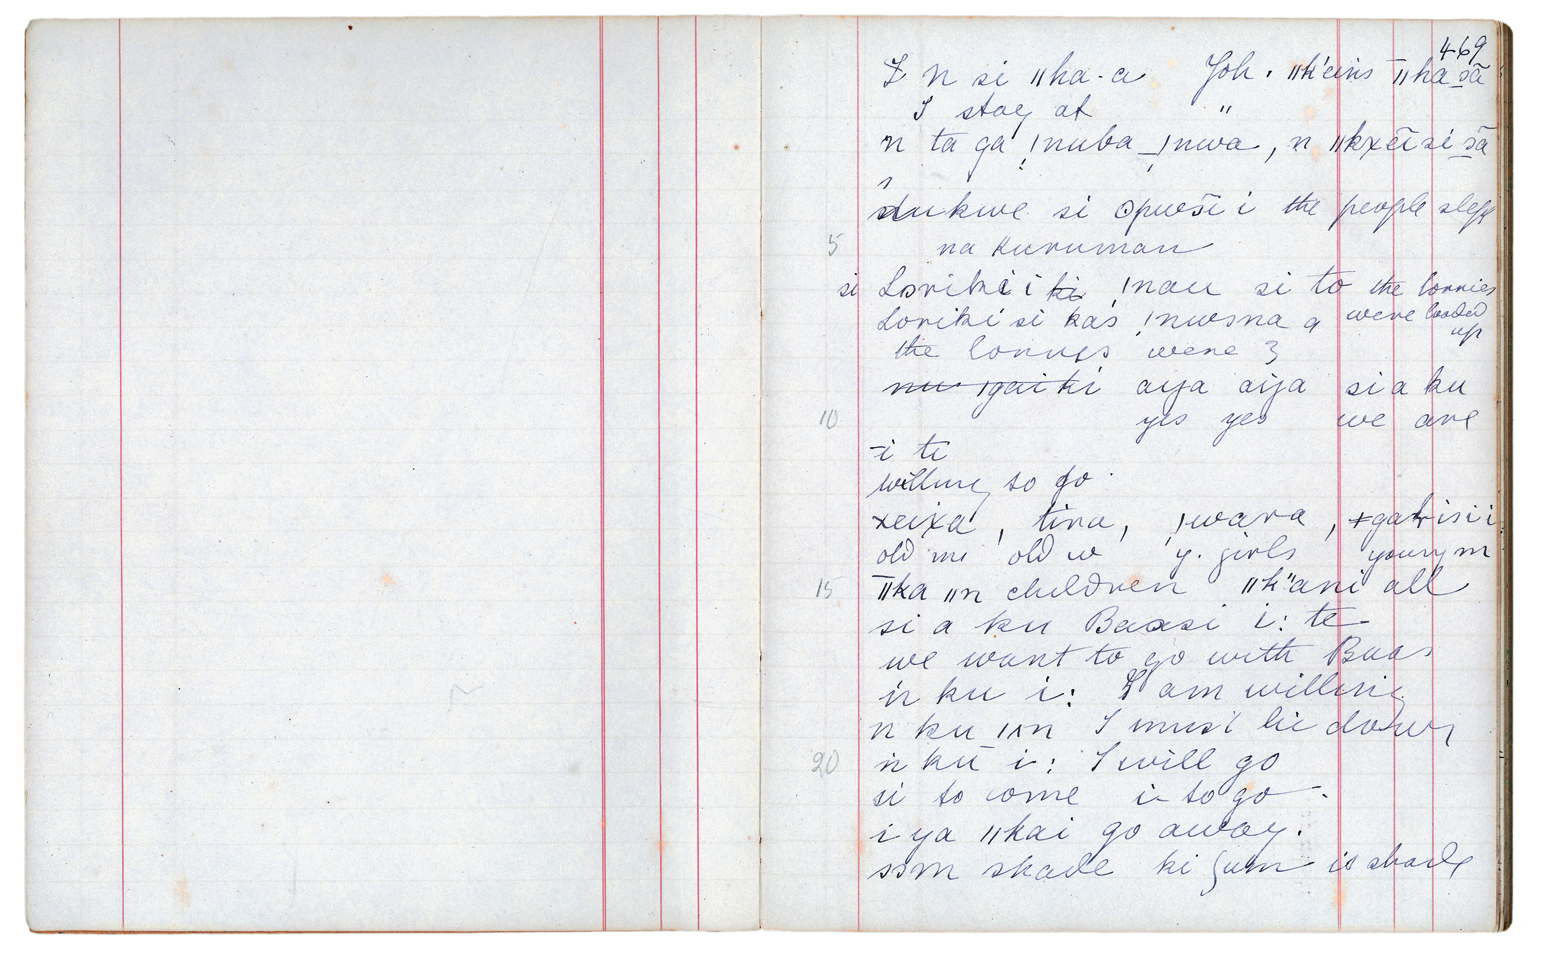 469
I n si ǁha·a Joh. ǁk'ains ǁha sã
I stay at "
n ta ga ǃnuba ǃnwa, n ǁkxẽĩsi sã
dukwe si ʘpwoi i the people slept
5 na Kuruman
si Loriki i ki ǃnau si to the lorries
Loriki si kas ǃnwsna a were loaded up
the lorries were 3
nu ǀgaiki aija aija si a ku
10 yes yes we are
i te
willing to go.
xeixa, tira, ǀwara, ǂgabisi i
old m old w y. girls young m
15 ǁka ǁn children ǁk"ani all
si a ku Baasi i: te
we want to go with Baas
n ku i: I am willing
n ku ǀʌn I must lie down
20 n kū i: I will go
si to come i to go.
i ya ǁkai go away.
som skade ki ʃum is shade